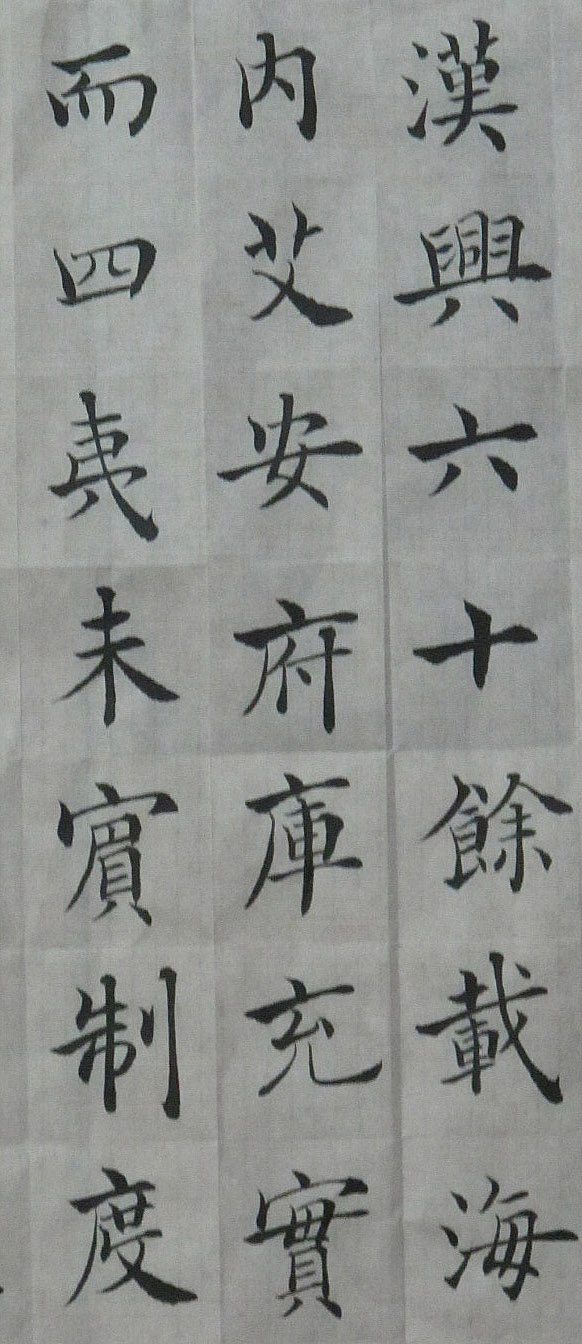 漢興六十餘載海
内艾安府庫充實
而四夷未賓制度